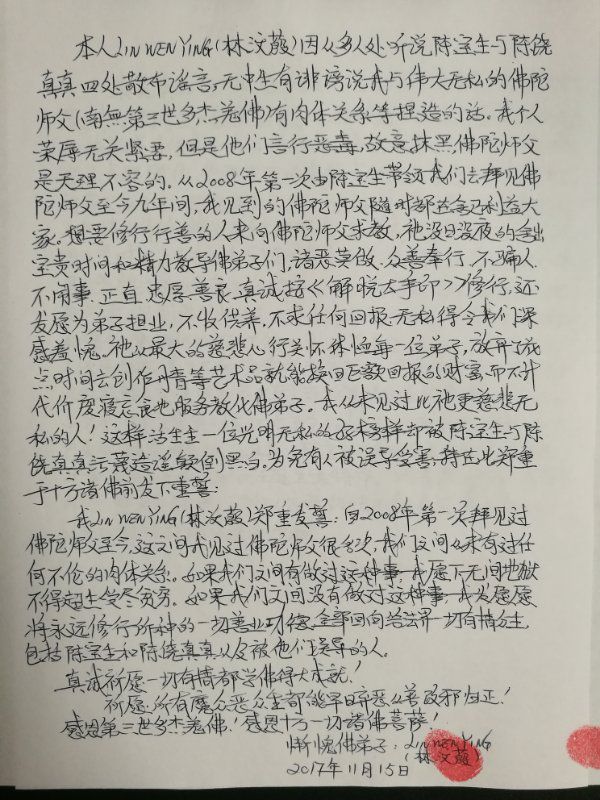 本人LIN WEN YING(林汶薇)因从多人处听说陈宝生与陈饶
真真四处散布谣言，无中生有诽谤说我与伟大无私的佛陀
师父(南無第三世多杰羌佛)有肉体关系等捏造的话。我个人
荣辱无关紧要，但是他们言行恶毒，故意抹黑佛陀师父
是天理不容的。从2008年第一次由陈宝生带领我们去拜见佛
陀师父至今九年间，我见到的佛陀师父随时都在舍己利益大
家。想要修行行善的人来向佛陀师父求教，祂没日没夜的拿出
宝贵时间和精力教导佛弟子们，诸恶莫做，众善奉行，不骗人，
不闹事，正直，忠厚，善良，真诚按《解脱大手印》修行，还
发愿为弟子担业，不收供养，不求任何回报。无私得令我们深
感羞愧。祂以最大的慈悲心行关怀体恤每一位弟子，放弃了花
点时间去创作丹青等艺术品就能换回巨额回报的财富，而不计
代价废寝忘食地服务教化佛弟子。我从未见过比祂更慈悲无
私的人！这样活生生一位光明无私的好榜样却被陈宝生与陈
饶真真污蔑造谣颠倒黑白。为免有人被误导受害，特在此郑重
于十方诸佛前发下重誓：
我LIN WEN YING(林汶薇)郑重发誓：自2008年第一次拜见过
佛陀师父至今，这之间我见过佛陀师父很多次，我们之间从未有过任
何不伦的肉体关系。如果我们之间有做过这种事，我愿下无间地狱
不得超生受尽贫穷。如果我们之间没有做过这种事，我发愿愿
将永远修行所种的一切善业功德，全部回向给法界一切有情众生，
包括陈宝生和陈饶真真以及被他们误导的人。
真诚祈愿一切有情都学佛得大成就！
祈愿所有魔众恶众生都能早日弃恶从善改邪归正！
感恩第三世多杰羌佛！感恩十方一切诸佛菩萨！
惭愧佛弟子：LIN WEN YING
(林汶薇)
2017年11月15日